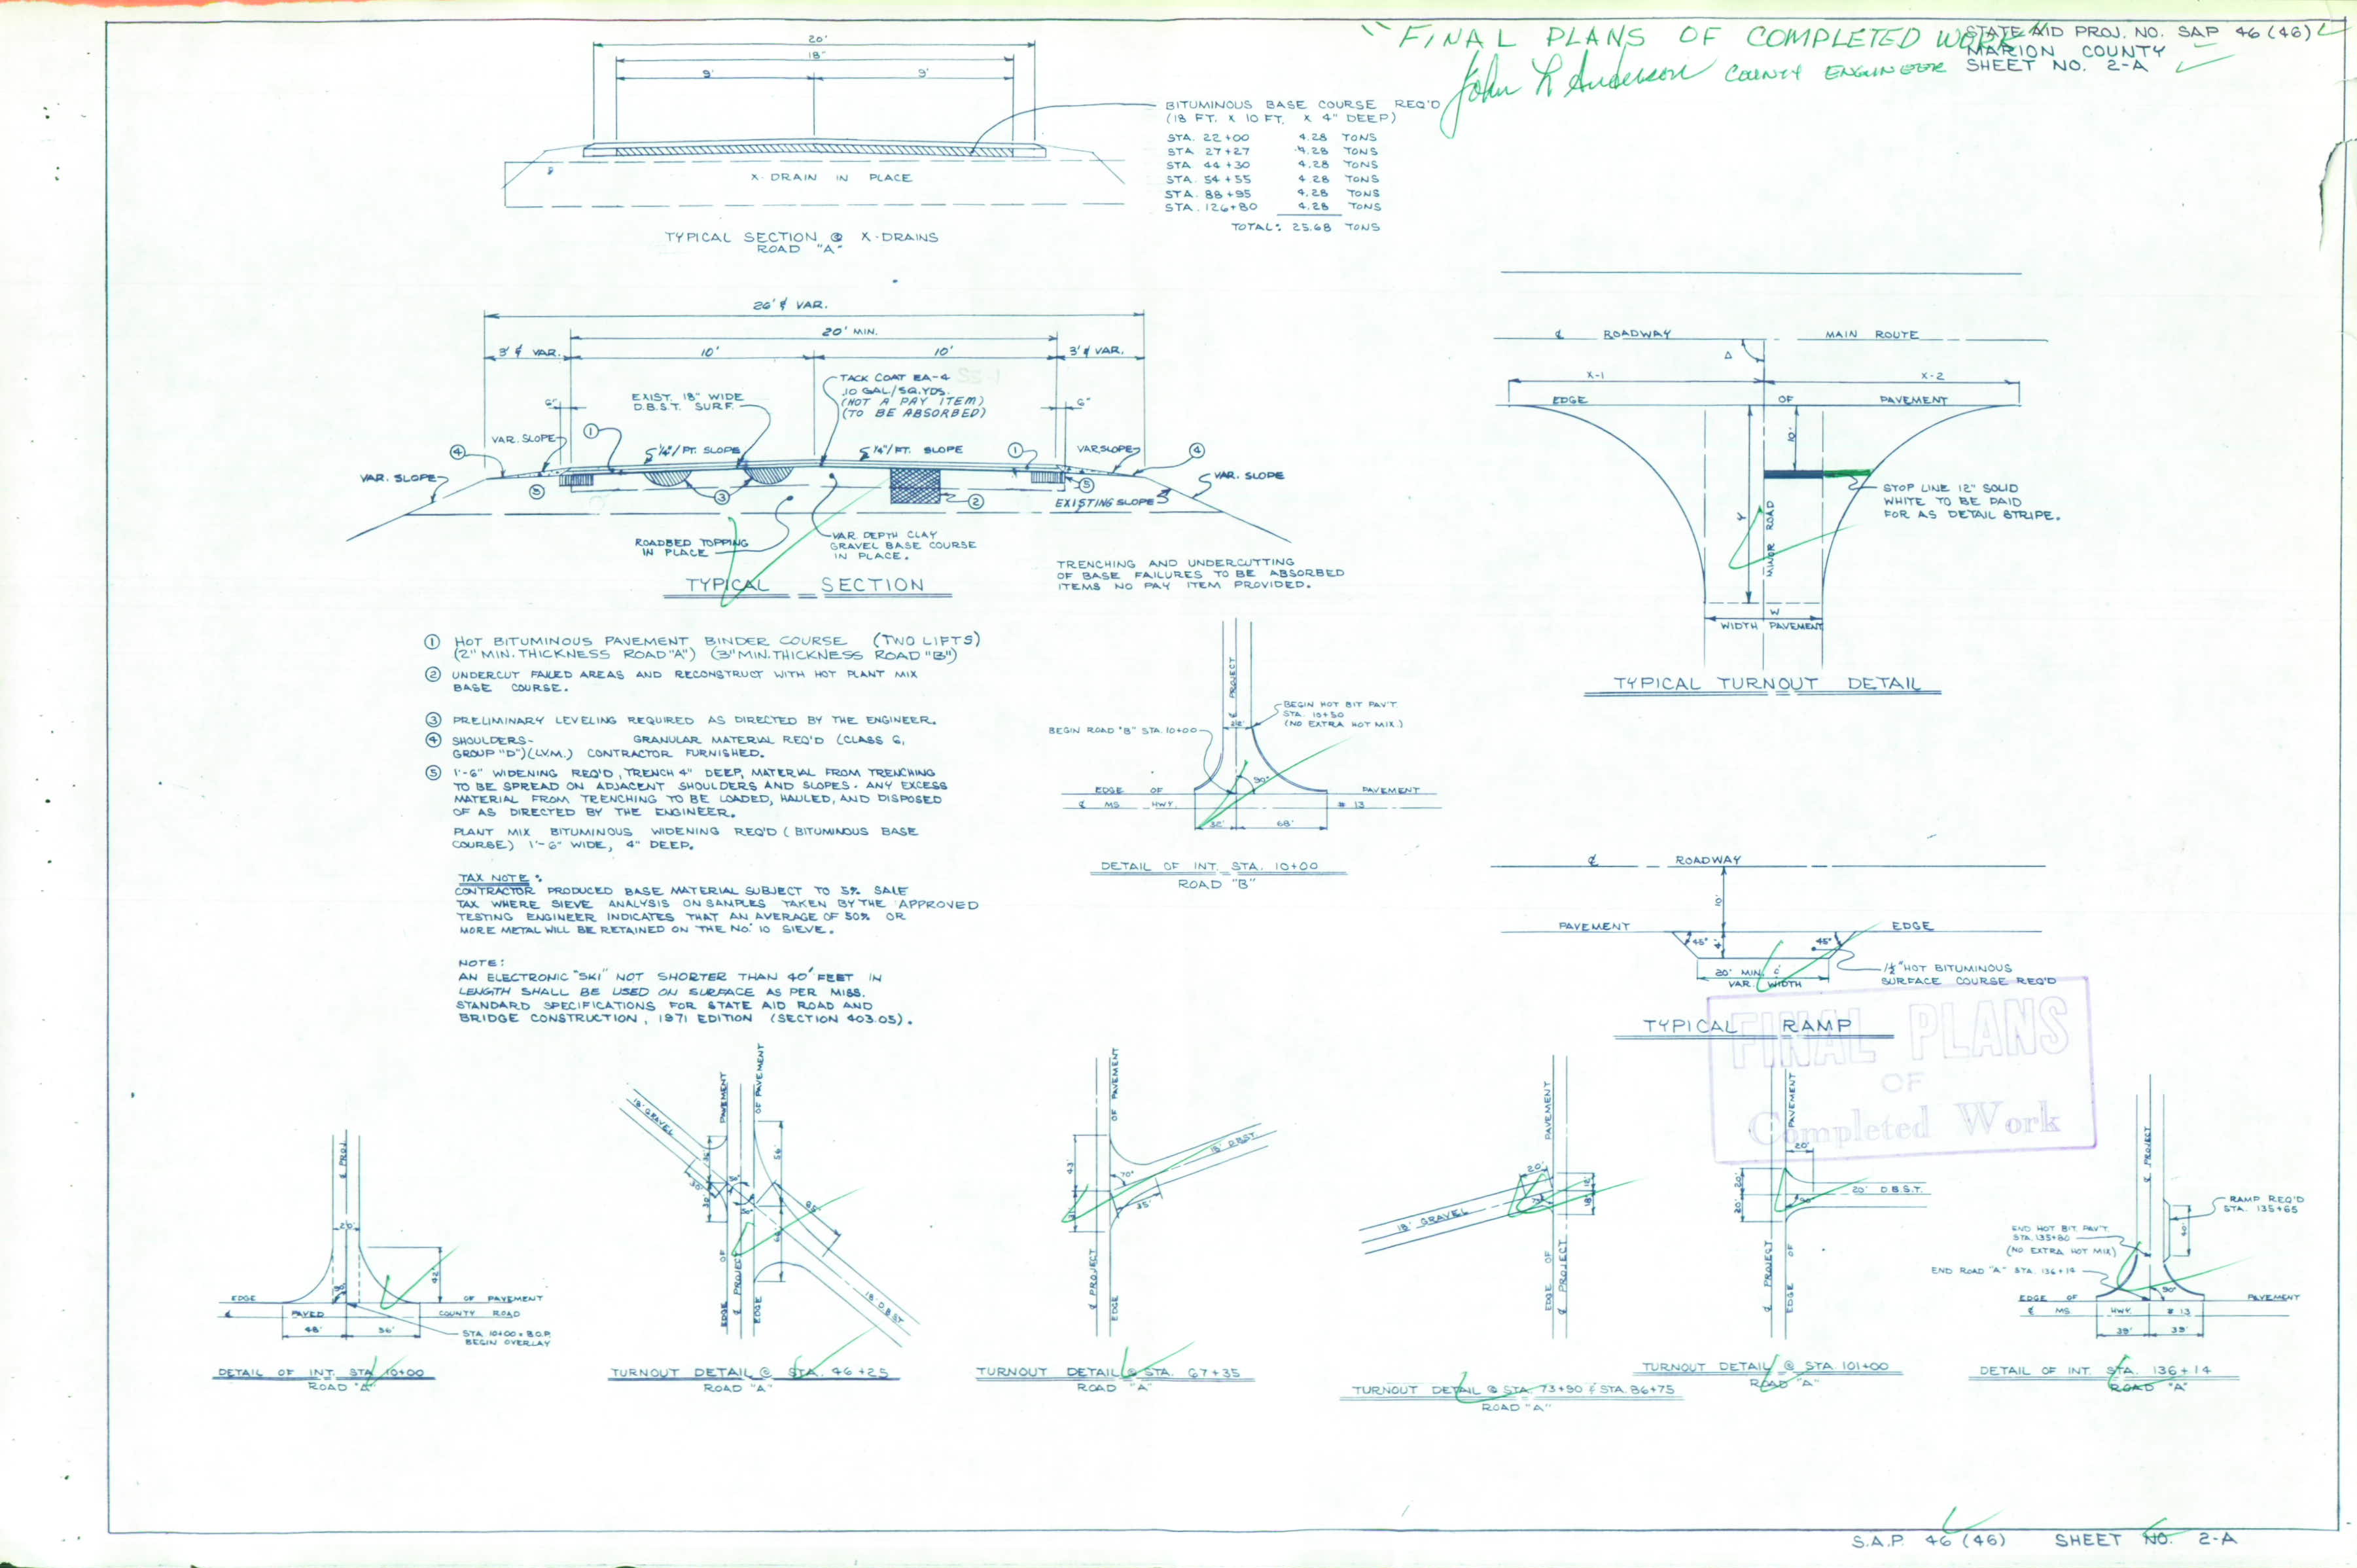 "FINAL PLANS OF COMPLETED WORK"
John L Anderson COUNTY ENGINEER
STATE AID PROJ. NO. SAP 46 (46)
MARION COUNTY
SHEET NO. 2-A
20'
18"
9' 9'
BITUMINOUS BASE COURSE REQ'D
(18 FT. X 10 FT. X 4" DEEP)
STA. 22+00 4.28 TONS
STA 27+27 4.28 TONS
STA 44+30 4.28 TONS
STA. 54+55 4.28 TONS
STA. 88+95 4.28 TONS
STA. 126+80 4.28 TONS
TOTAL: 25.68 TONS
X-DRAIN IN PLACE
TYPICAL SECTION @ X-DRAINS
ROAD "A"
26' & VAR.
20' MIN.
3' & VAR. 10' 10' 3' & VAR.
6" 6"
EXIST. 18" WIDE
D.B.S.T. SURF.
TACK COAT EA-4
.10 GAL/SQ.YDS.
(NOT A PAY ITEM)
(TO BE ABSORBED)
VAR. SLOPE
1
1/4"/FT. SLOPE
1/4"/FT. SLOPE
1
VAR.SLOPE
4
4
VAR. SLOPE
5
3
2
5
VAR. SLOPE
EXISTING SLOPE
ROADBED TOPPING
IN PLACE
VAR DEPTH CLAY
GRAVEL BASE COURSE
IN PLACE.
TYPICAL SECTION
TRENCHING AND UNDERCUTTING
OF BASE FAILURES TO BE ABSORBED
ITEMS NO PAY ITEM PROVIDED.
1 HOT BITUMINOUS PAVEMENT BINDER COURSE (TWO LIFTS)
(2" MIN. THICKNESS ROAD "A") (3" MIN. THICKNESS ROAD "B")
2 UNDERCUT FAILED AREAS AND RECONSTRUCT WITH HOT PLANT MIX
BASE COURSE.
3 PRELIMINARY LEVELING REQUIRED AS DIRECTED BY THE ENGINEER.
4 SHOULDERS- GRANULAR MATERIAL REQ'D (CLASS 6,
GROUP "D")(LVM.) CONTRACTOR FURNISHED.
5 1'-6" WIDENING REQ'D, TRENCH 4" DEEP, MATERIAL FROM TRENCHING
TO BE SPREAD ON ADJACENT SHOULDERS AND SLOPES. ANY EXCESS
MATERIAL FROM TRENCHING TO BE LOADED, HAULED, AND DISPOSED
OF AS DIRECTED BY THE ENGINEER.
PLANT MIX BITUMINOUS WIDENING REQ'D (BITUMINOUS BASE
COURSE) 1'-6" WIDE, 4" DEEP.
TAX NOTE:
CONTRACTOR PRODUCED BASE MATERIAL SUBJECT TO 5% SALE
TAX WHERE SIEVE ANALYSIS ON SAMPLES TAKEN BY THE APPROVED
TESTING ENGINEER INDICATES THAT AN AVERAGE OF 50% OR
MORE METAL WILL BE RETAINED ON THE NO. 10 SIEVE.
NOTE:
AN ELECTRONIC "SKI" NOT SHORTER THAN 40' FEET IN
LENGTH SHALL BE USED ON SURFACE AS PER MISS.
STANDARD SPECIFICATIONS FOR STATE AID ROAD AND
BRIDGE CONSTRUCTION, 1971 EDITION (SECTION 403.05).
℄ ROADWAY MAIN ROUTE
Δ
X-1 X-2
EDGE OF PAVEMENT
10'
Y
MINOR ROAD
STOP LINE 12" SOLID
WHITE TO BE PAID
FOR AS DETAIL STRIPE.
W
WIDTH PAVEMENT
TYPICAL TURNOUT DETAIL
℄ PROJECT
BEGIN HOT BIT PAV'T.
STA. 10+50
(NO EXTRA HOT MIX.)
BEGIN ROAD "B" STA. 10+00
90°
EDGE OF PAVEMENT
℄ MS HWY. # 13
32' 68'
DETAIL OF INT. STA. 10+00
ROAD "B"
℄ ROADWAY
10'
PAVEMENT EDGE
45° 4' 45°
20' MIN. &
VAR. WIDTH
1½" HOT BITUMINOUS
SURFACE COURSE REQ'D
TYPICAL RAMP
FINAL PLANS
OF
Completed Work
℄ PROJ.
20'
42'
EDGE OF PAVEMENT
℄ PAVED COUNTY ROAD
48' 36'
STA. 10+00 = B.O.P.
BEGIN OVERLAY
DETAIL OF INT. STA 10+00
ROAD "A"
18' GRAVEL
PAVEMENT
OF PAVEMENT
56'
30'
EDGE OF
℄ PROJECT
EDGE
18' D.B.S.T.
TURNOUT DETAIL @ STA. 46+25
ROAD "A"
OF PAVEMENT
43'
70°
18' DBST.
35'
℄ PROJECT
EDGE
TURNOUT DETAIL @ STA. 67+35
ROAD "A"
PAVEMENT
20'
12'
18'
18' GRAVEL
EDGE OF
℄ PROJECT
TURNOUT DETAIL @ STA 73+90 & STA. 86+75
ROAD "A"
PAVEMENT
20'
20'
20'
90°
20' D.B.S.T.
℄ PROJECT
EDGE OF
TURNOUT DETAIL @ STA. 101+00
ROAD "A"
℄ PROJECT
RAMP REQ'D
STA. 135+65
40'
END HOT BIT. PAV'T.
STA. 135+80
(NO EXTRA HOT MIX)
END ROAD "A" STA. 136+14
90°
EDGE OF PAVEMENT
℄ MS HWY. # 13
39' 39'
DETAIL OF INT. STA. 136+14
ROAD "A"
S.A.P. 46 (46) SHEET NO. 2-A